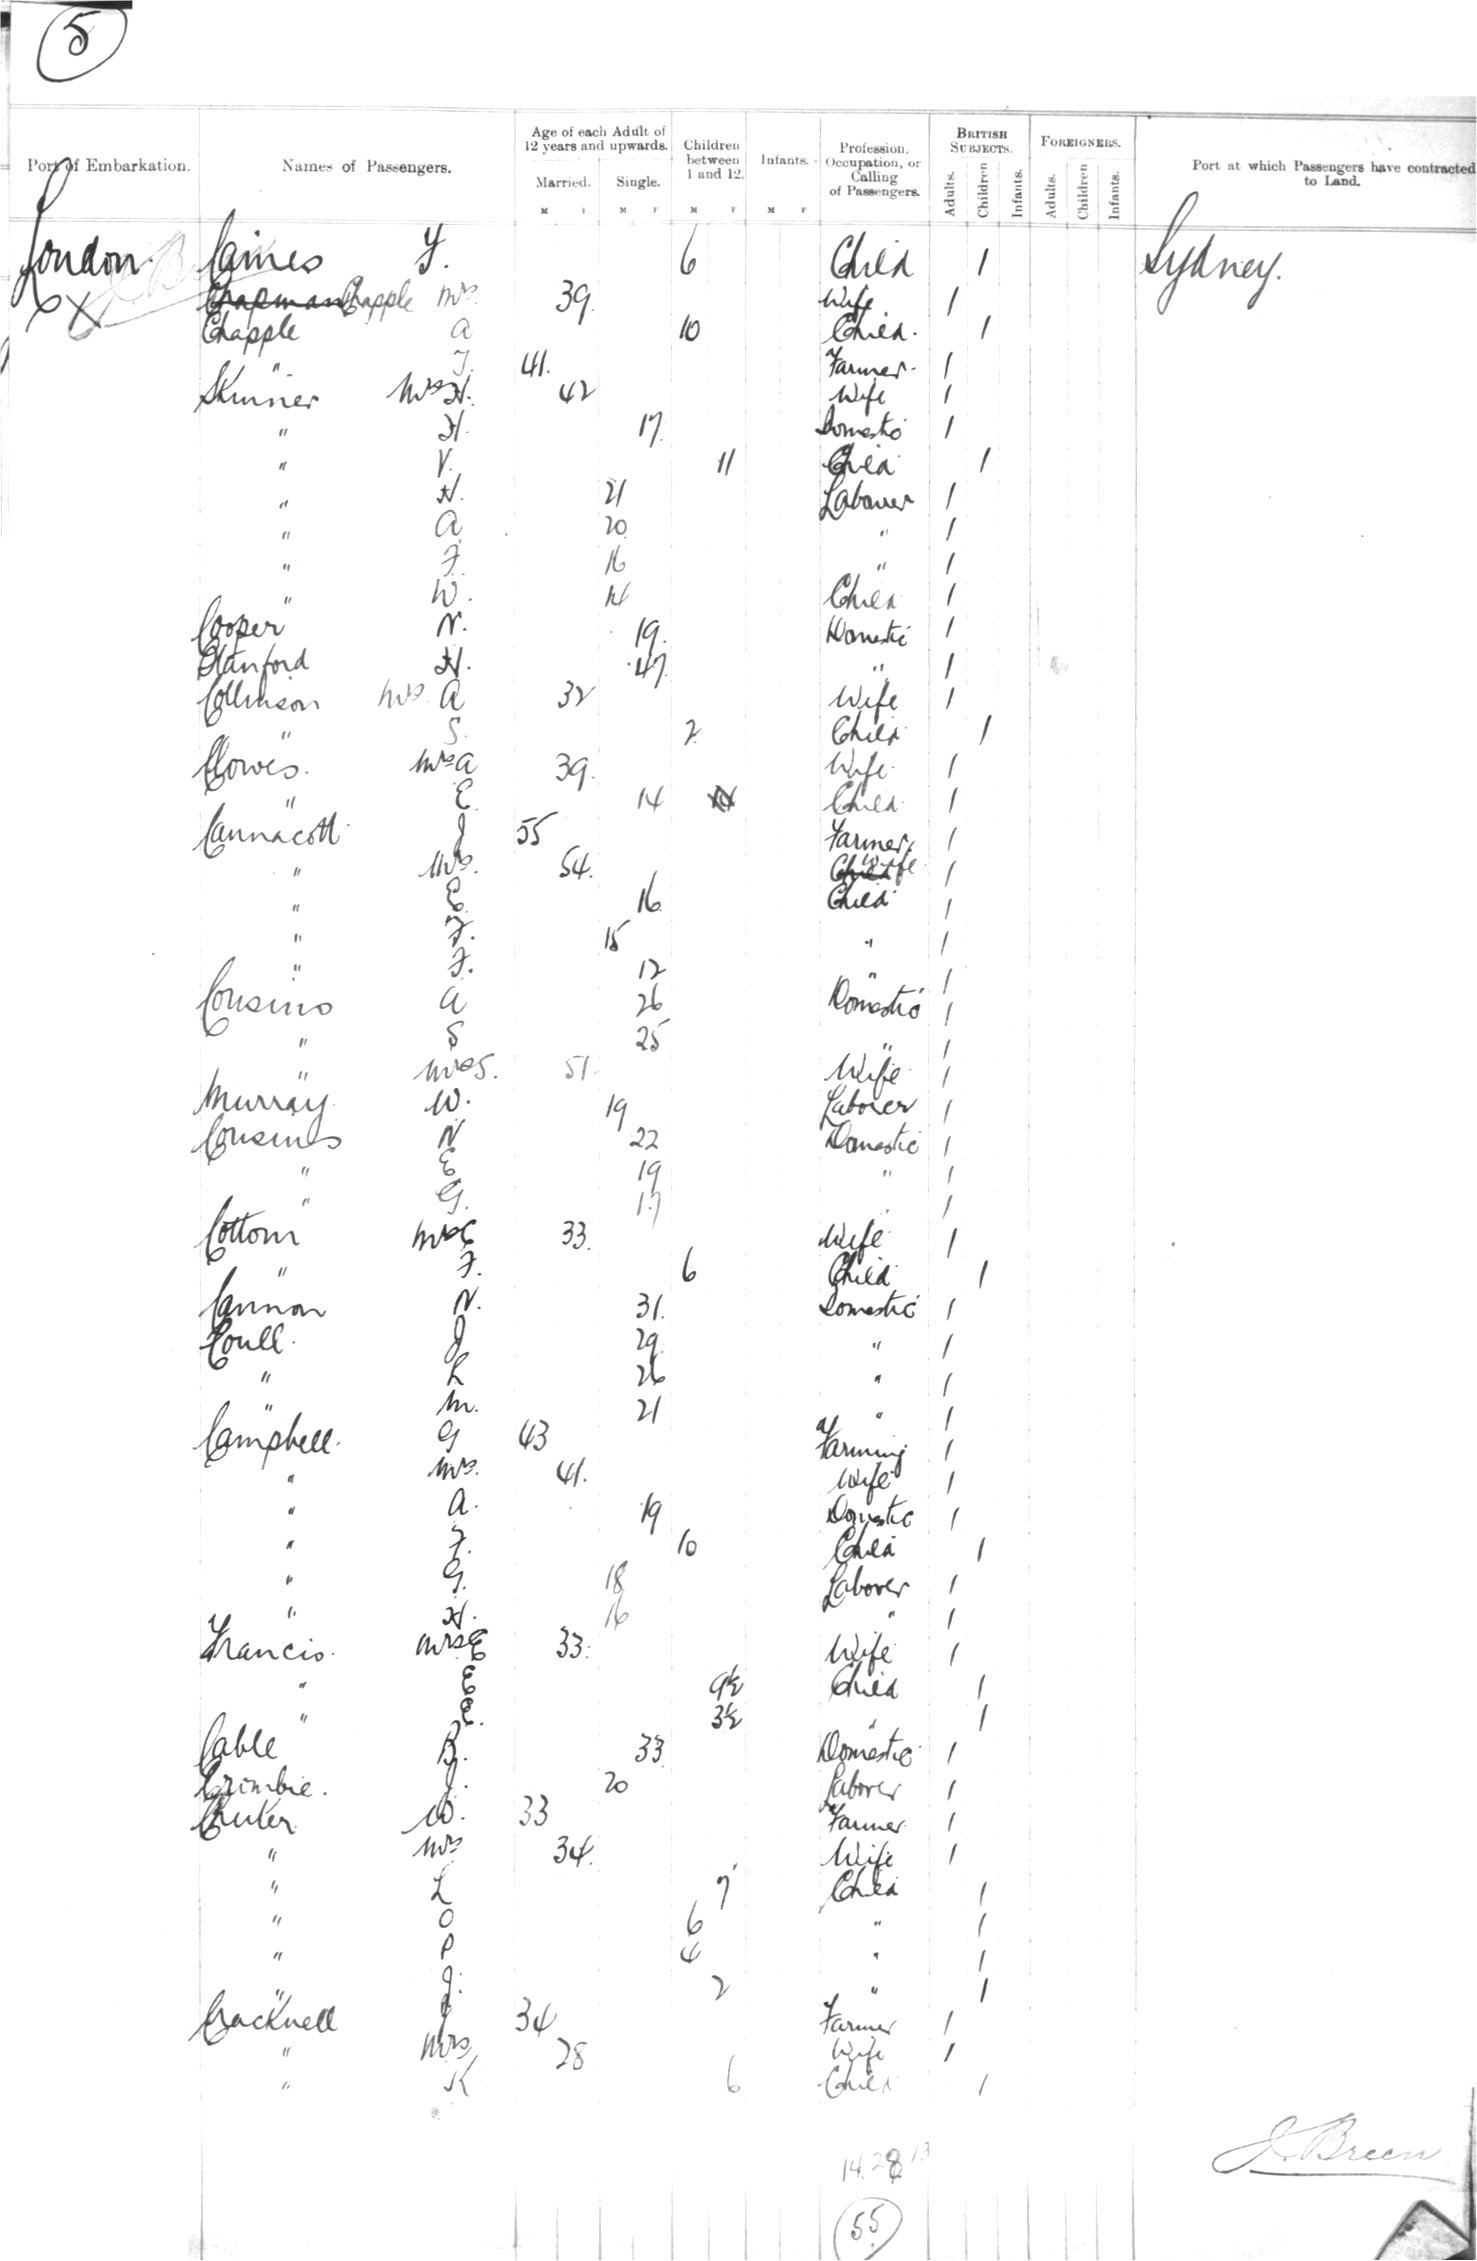 5
Port of Embarkation. Names of Passengers. Age of each Adult of 12 years and upwards. Children between 1 and 12. Infants. Profession, Occupation, or Calling of Passengers. British Subjects. Foreigners. Port at which Passengers have contracted to Land.
Married. Single. Adults. Children Infants. Adults. Children Infants.
M F M F M F M F
London. Caines Y. 6 Child 1 Sydney.
XX Chapman Chapple Mrs. 39. Wife 1
Chapple A 10 Child. 1
" J. 41. Farmer. 1
Skinner Mrs H. 42 Wife 1
" H. 17. Domestic 1
" V. 11 Child 1
" H. 21 Labourer 1
" A 20 " 1
" F. 16 " 1
" W. 14 Child 1
Cooper N. 19. Domestic 1
Stanford H. 47. " 1
Collinson Mrs A 32 Wife 1
" S. 2 Child 1
Clowes. Mrs A 39. Wife 1
" E. 14 14 Child 1
Cannacott J 55 Farmer. 1
" Mrs. 54. Child Wife 1
" E. 16. Child 1
" F. 15 " 1
" F. 12 " 1
Cousins A 26 Domestic 1
" S 25 " 1
" Mrs S. 51. Wife 1
Murray. W. 19 Laborer 1
Cousins N 22 Domestic 1
" E 19 " 1
" G. 17 1
Cottom Mrs C 33. Wife 1
" F. 6 Child 1
Cannon N. 31. Domestic 1
Coull. J 29. " 1
" L 26 " 1
" M. 21 " 1
Campbell. G 43 Farming 1
" Mrs. 41. Wife 1
" A. 19 Domestic 1
" F. 10 Child 1
" G. 18 Laborer 1
" H. 16 " 1
Francis. Mrs E 33. Wife 1
" E 9½ Child 1
" E. 3½ " 1
Cable B. 33. Domestic 1
Crimbie. J. 20 Laborer 1
W. 33 Farmer 1
" Mrs 34. Wife 1
" L 7 Child 1
" O 6 " 1
" P 4 " 1
" J. 2 " 1
Cracknell J 34 Farmer 1
" Mrs 28 Wife 1
" K 6 Child 1
14 28 13
55
J. Breen